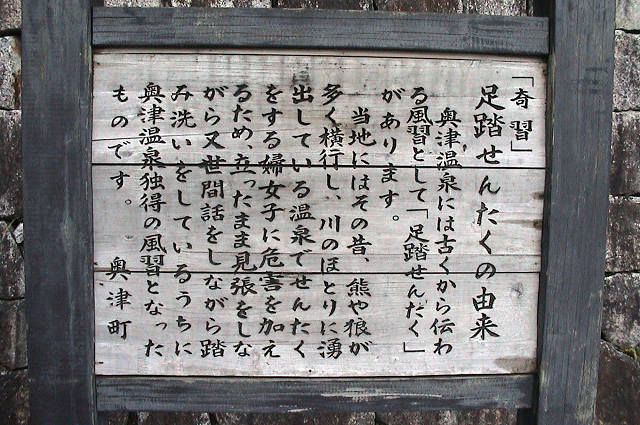 「奇習」
足踏せんたくの由来
奥津温泉には古くから伝わ
る風習として「足踏せんたく」
があります。
当地にはその昔、熊や狼が
多く横行し、川のほとりに湧
出している温泉でせんたく
をする婦女子に危害を加え
るため、立ったまま見張をしな
がら又世間話をしながら踏
み洗いをしているうちに
奥津温泉独得の風習となった
ものです。
奥津町